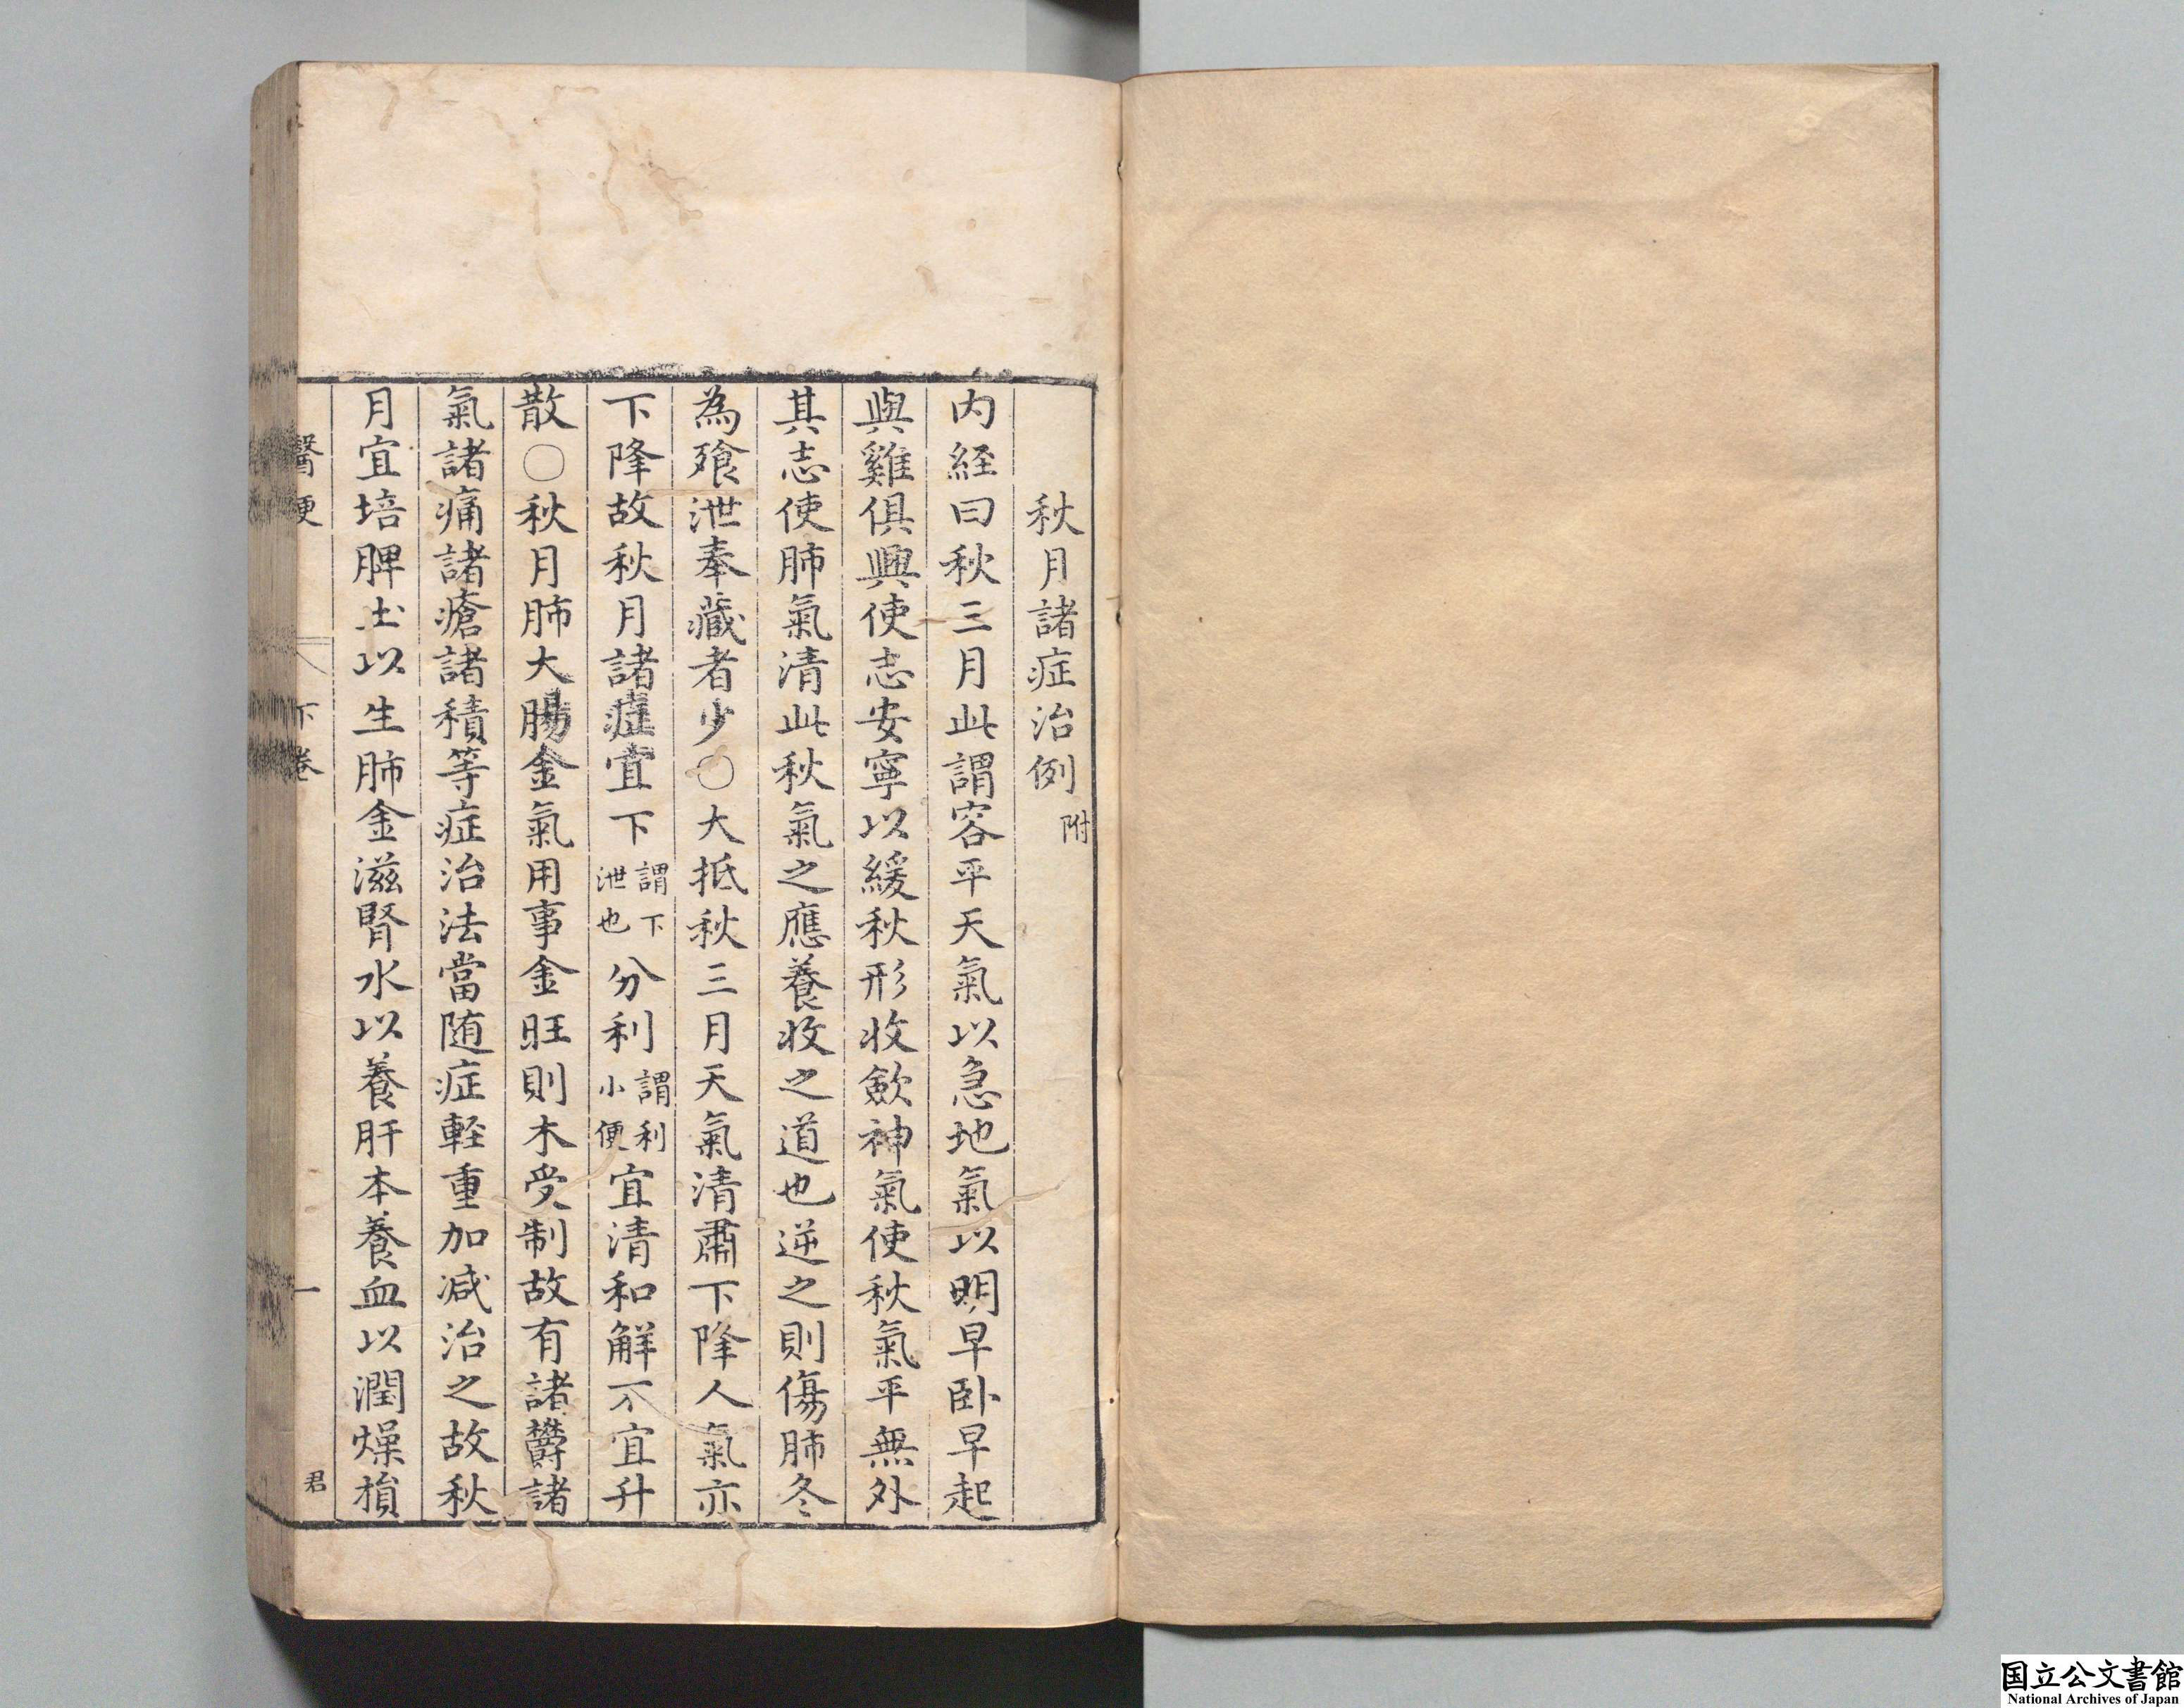 秋月諸症治例 附
内経曰秋三月此謂容平天氣以急地氣以明早卧早起
與雞俱興使志安寧以緩秋形收斂神氣使秋氣平無外
其志使肺氣清此秋氣之應養收之道也逆之則傷肺冬
為飱泄奉藏者少○大抵秋三月天氣清肅下降人氣亦
下降故秋月諸症宜下謂下泄也分利謂利小便宜清和解不宜升
散○秋月肺大腸金氣用事金旺則木受制故有諸欝諸
氣諸痛諸瘡諸積等症治法當随症軽重加减治之故秋
月宜培脾土以生肺金滋腎水以養肝本養血以潤燥損
醫便 下卷 一 君
国立公文書館
National Archives of Japan